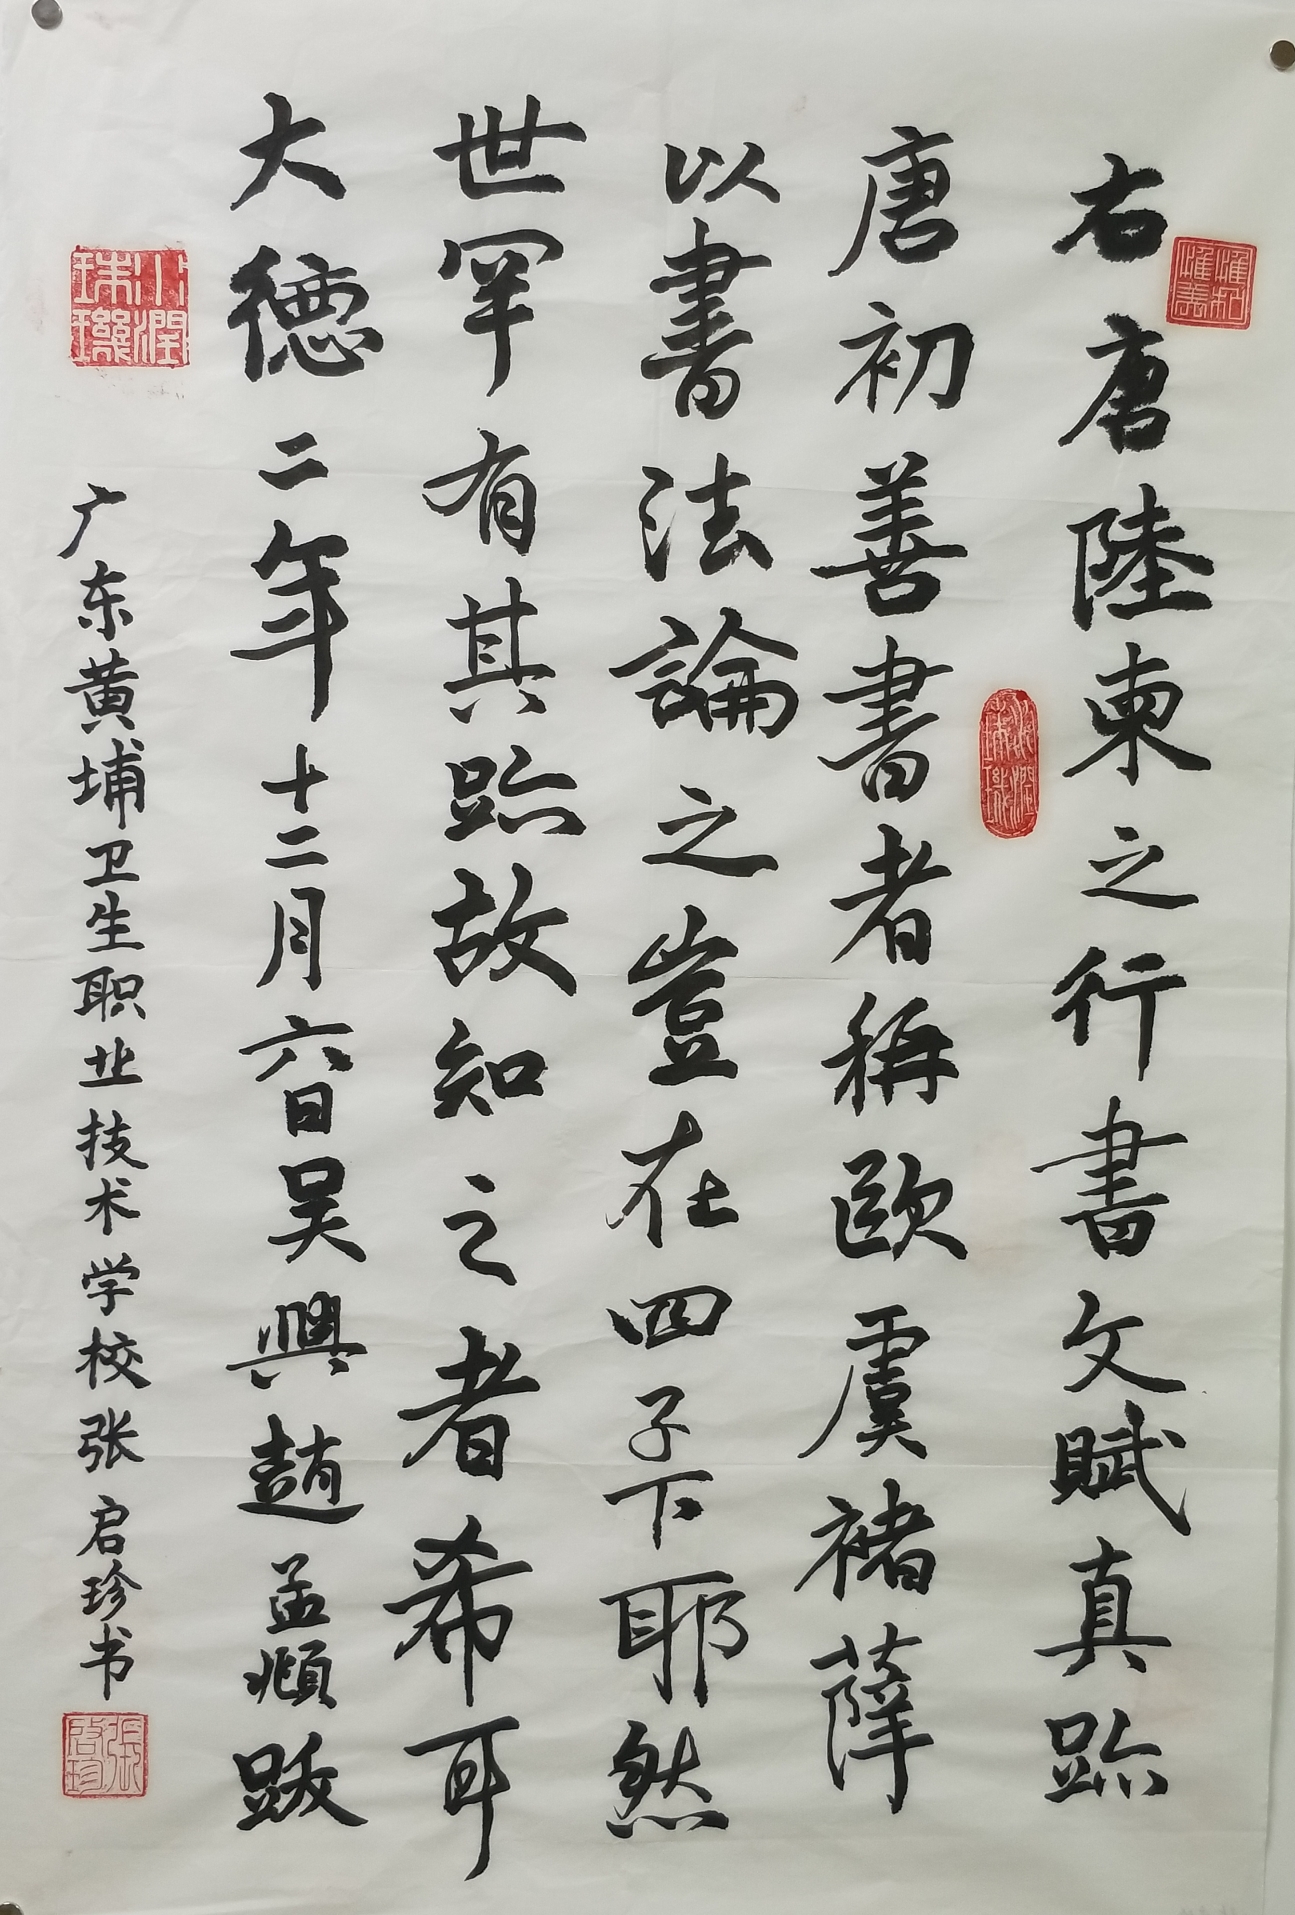 右唐陸柬之行書文賦真跡
唐初善書者稱歐虞褚薛
以書法論之豈在四子下耶然
世罕有其跡故知之者希耳
大德二年十二月六日吴興趙孟頫跋
广东黄埔卫生职业技术学校张启珍书
小潤
珠璣
張
啓珍